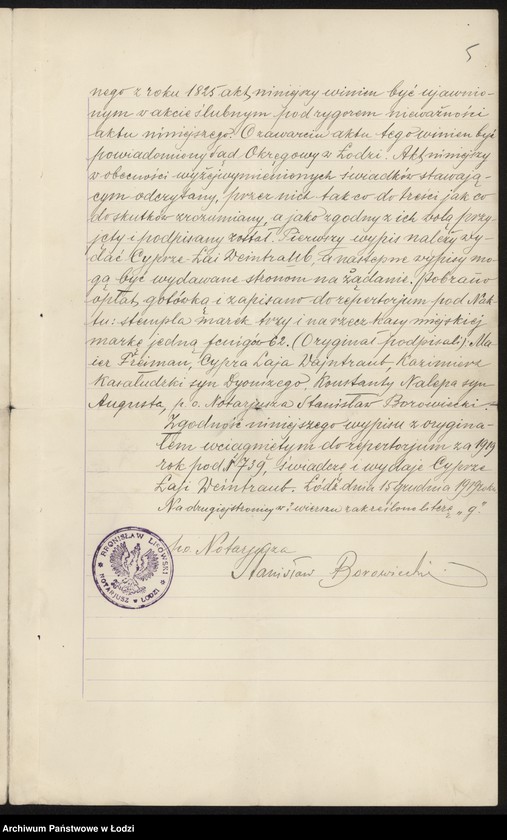 5
nego z roku 1825 akt niniejszy winien być ujawnio-
nym w akcie ślubnym pod rygorem nieważności
aktu niniejszego. O zawarciu aktu tego winien być
powiadomiony Sąd Okręgowy w Łodzi. Akt niniejszy
w obecności wyżejwymienionych świadków stawają-
cym odczytany, przez nich tak co do treści jak co
do skutków zrozumiany, a jako zgodny z ich wolą przy-
jęty i podpisany został. Pierwszy wypis należy wy-
dać Cyprze Łai Weintraub, a następne wypisy mo-
gą być wydawane stronom na żądanie. Pobrano
opłat gotówką i zapisano do repertorjum pod №
tu: stempla marek trzy i na rzecz kasy miejskiej
markę jedną fenigów 62. (Oryginał podpisali) Ma-
jer Frejman, Cypra Łaja Wajntraub, Kazimierz
syn Dyonizego, Konstanty Nalepa syn
Augusta, p.o. Notarjusza Stanisław Borowiecki.
Zgodność niniejszego wypisu z orygina-
łem wciągniętym do repertorjum za 1919
rok pod № 739, świadczę i wydaję Cyprze
Łaji Weintraub. Łódź dnia 15 grudnia 1919 roku
Na drugiej stronicy w wierszu zakreślono literę „g".
p.o. Notarjusza
Stanisław Borowiecki
BRONISŁAW LISOWSKI
NOTARJUSZ ŁODZI
Archiwum Państwowe w Łodzi